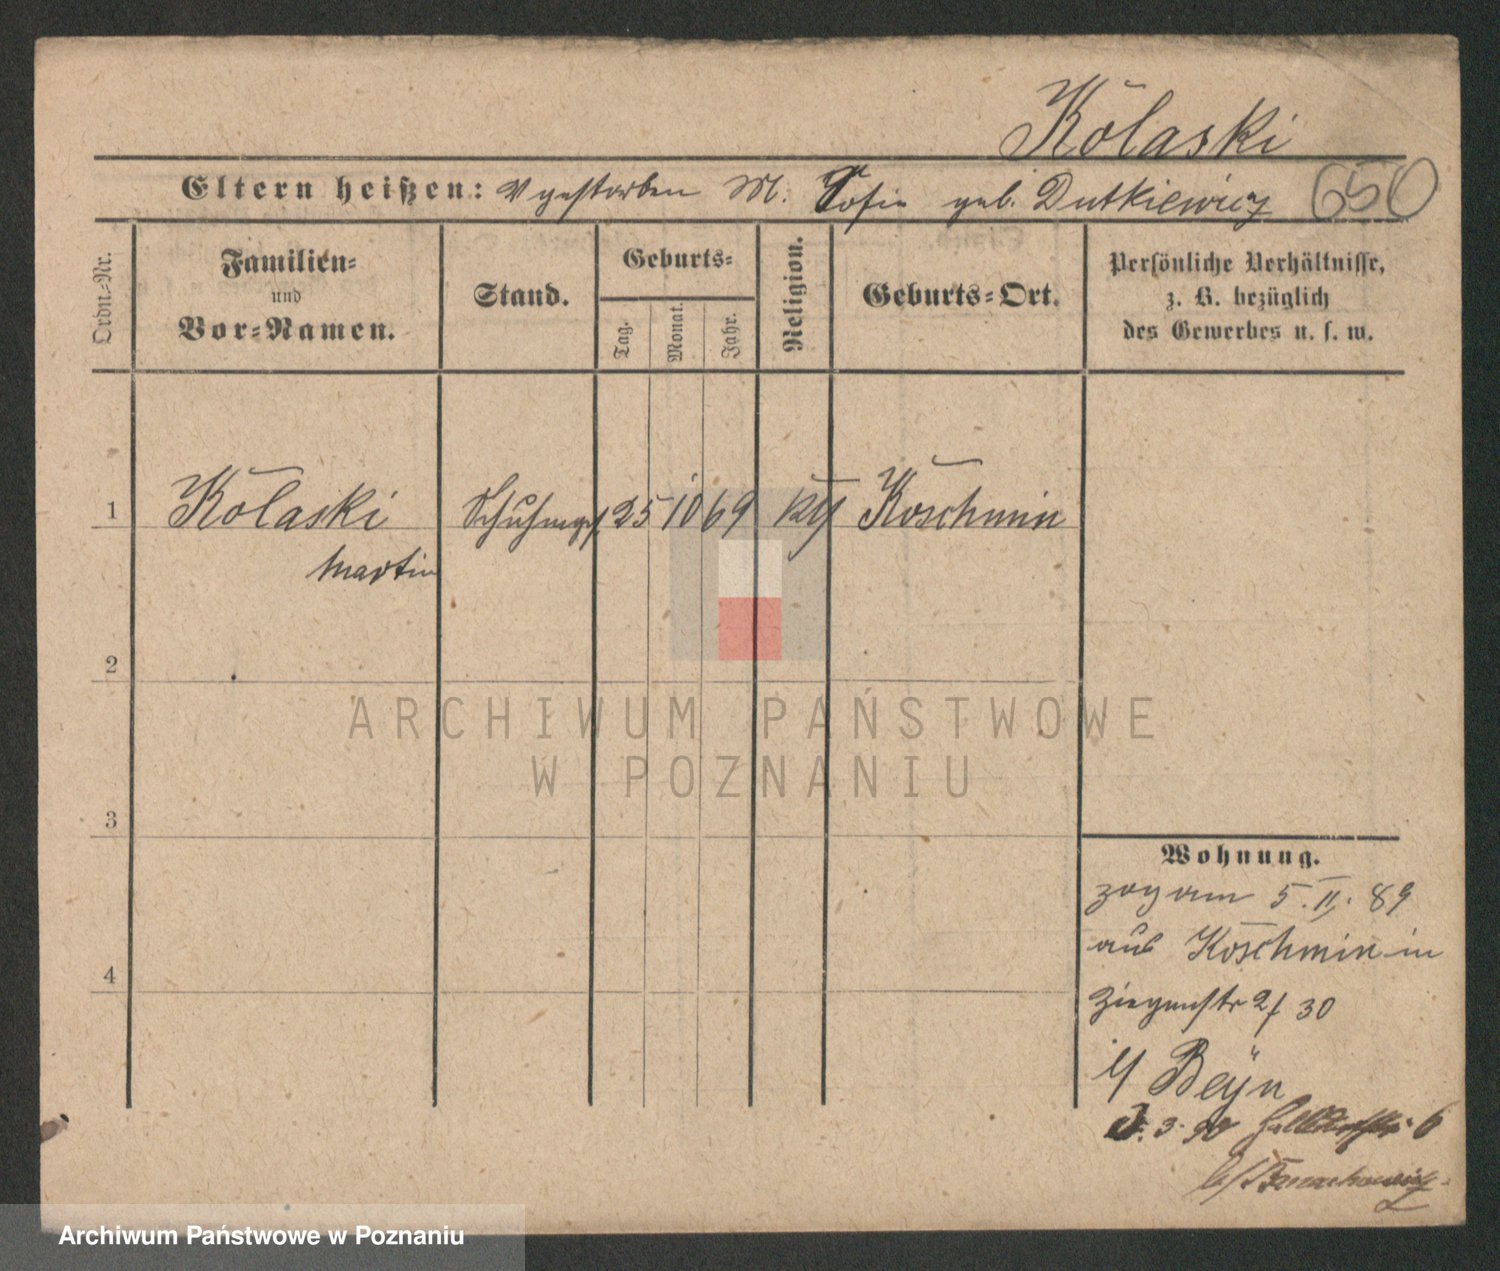 Kolaski
Eltern heißen: V gestorben M. Sofie geb. Dutkiewicz 650
Ordn.-Nr.
Familien-
und
Vor-Namen.
Stand.
Geburts-
Tag.
Monat.
Jahr.
Religion.
Geburts-Ort.
Persönliche Verhältnisse,
z. B. bezüglich
des Gewerbes u. s. w.
1 Kolaski Schuhmgs. 25 10 69 kth Koschmin
Martin
2
3
4
Wohnung.
zog am 5. II. 89
aus Koschmin in
Ziegenstr 2/ 30
b/ Beyn
3. 90 6
b/
ARCHIWUM PAŃSTWOWE
W POZNANIU
Archiwum Państwowe w Poznaniu